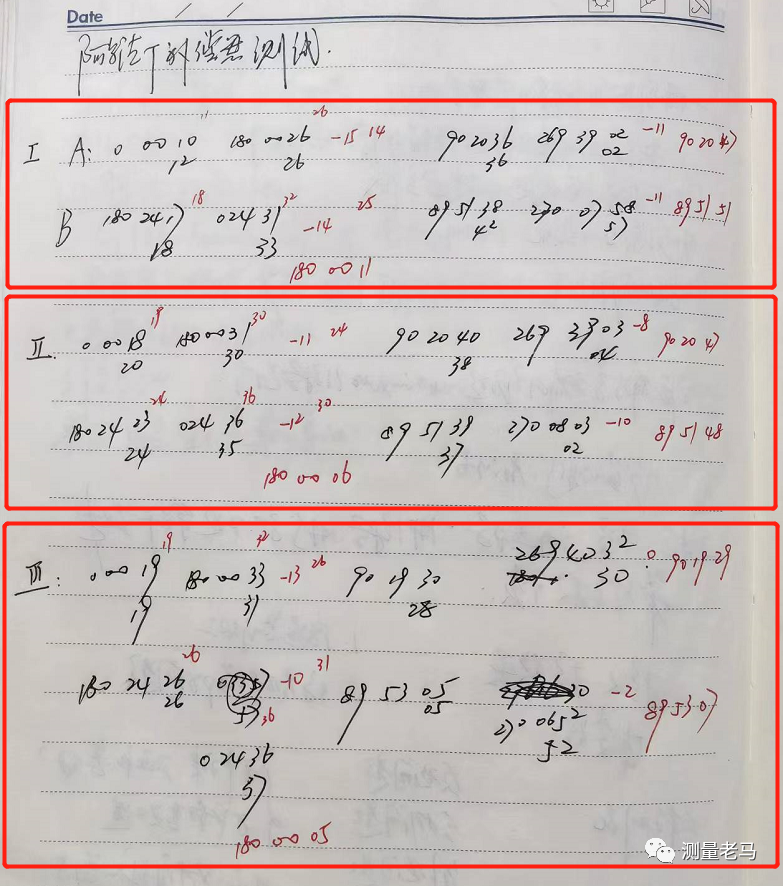 Date
I A: 0 00 10 11 180 00 26 26 -15 14 90 20 36 269 39 02 -11 90 20 47
12 26 36 02
B 180 24 17 18 0 24 31 32 -14 25 89 51 38 270 07 58 -11 89 51 51
18 33 42 57
180 00 11
II 0 00 18 19 180 00 31 30 -11 24 90 20 40 269 39 03 -8 90 20 47
20 30 38 04
180 24 23 24 0 24 36 36 -12 30 89 51 39 270 08 03 -10 89 51 48
24 35 37 02
180 00 06
III: 0 00 19 19 180 00 33 32 -13 26 90 19 30 269 40 32 0 90 19 29
19 31 28 30
180 24 26 26 -10 31 89 53 05 -2 89 53 07
26 36 05 270 06 52
0 24 36 52
37
180 00 05
测量老马